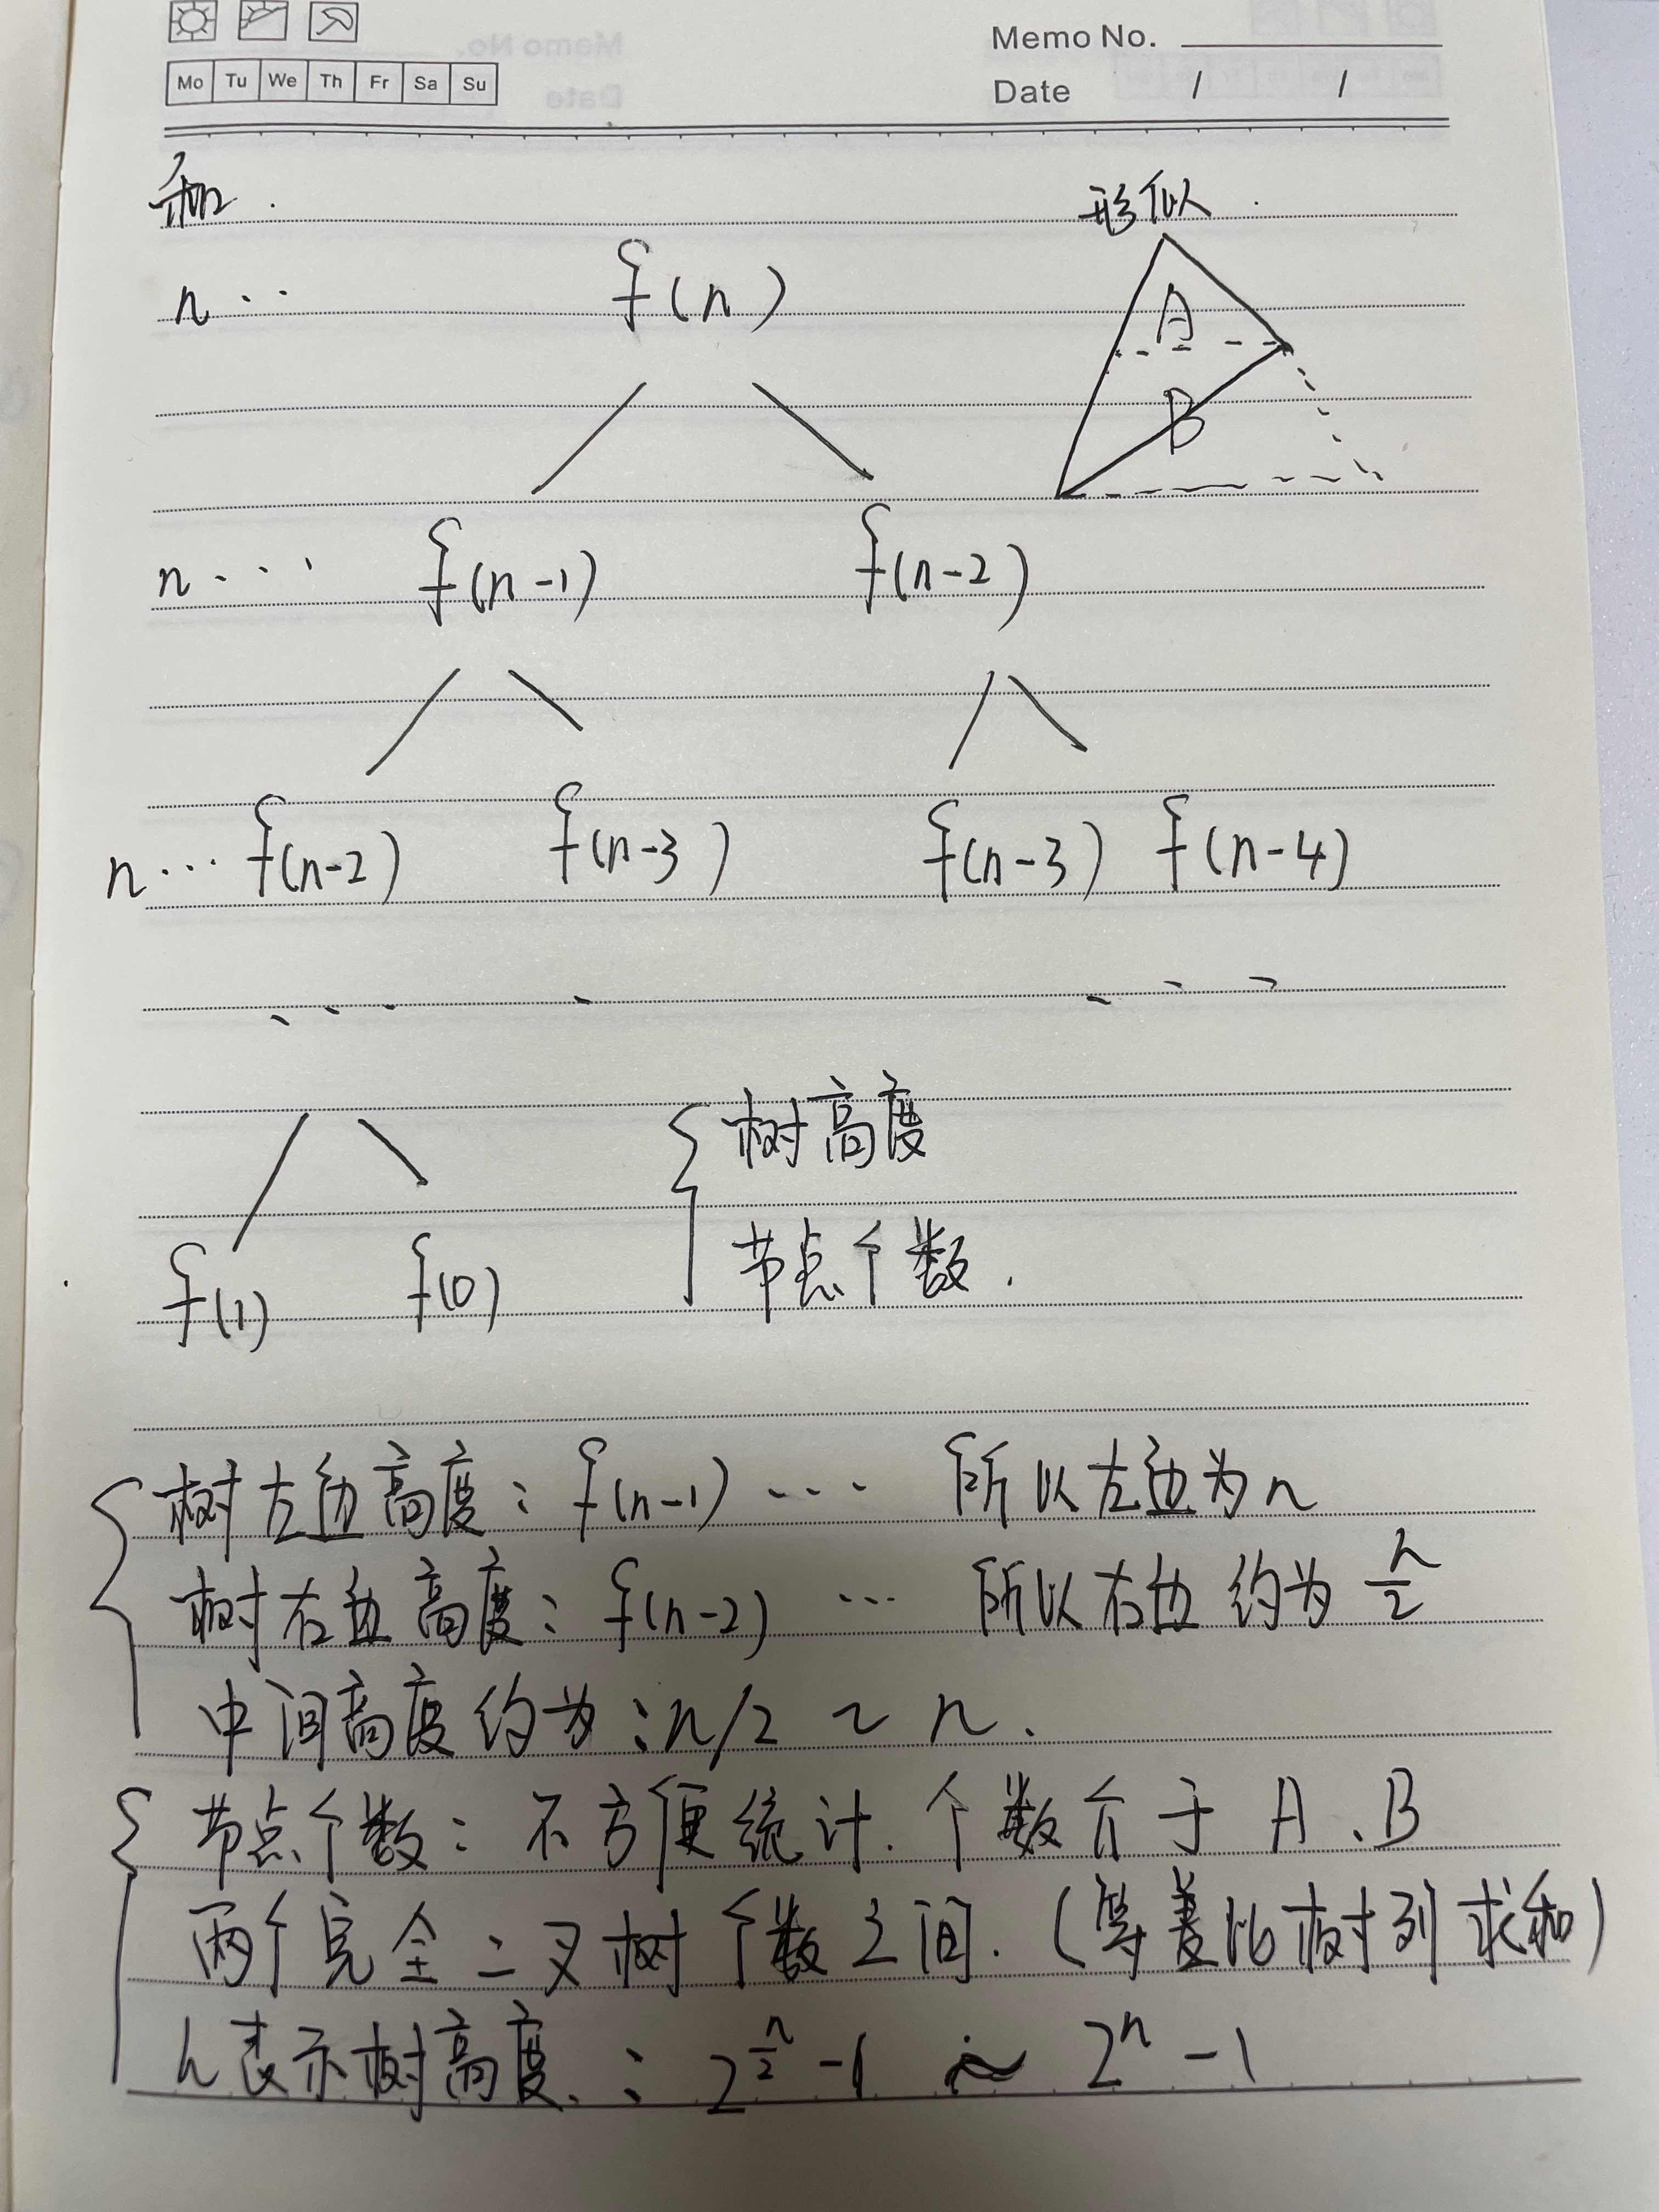 Memo No.
Mo Tu We Th Fr Sa Su
Date / /
和.
形似.
n ·· f(n)
A
B
n ··· f(n-1) f(n-2)
n ··· f(n-2) f(n-3) f(n-3) f(n-4)
树高度
f(1) f(0) 节点个数.
树左边高度: f(n-1) ··· 所以左边为n
树右边高度: f(n-2) ··· 所以右边约为 n/2
中间高度约为: n/2 ~ n.
节点个数: 不方便统计. 个数介于 A、B
两个完全二叉树个数之间. (等差比树列求和)
h表示树高度.: 2^(n/2) -1 ~ 2^n -1